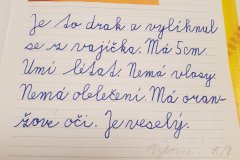 Je to drak a vylíhnul
se z vajíčka. Má 5cm.
Umí létat. Nemá vlasy.
Nemá oblečení. Má oran-
žove oči. Je veselý.